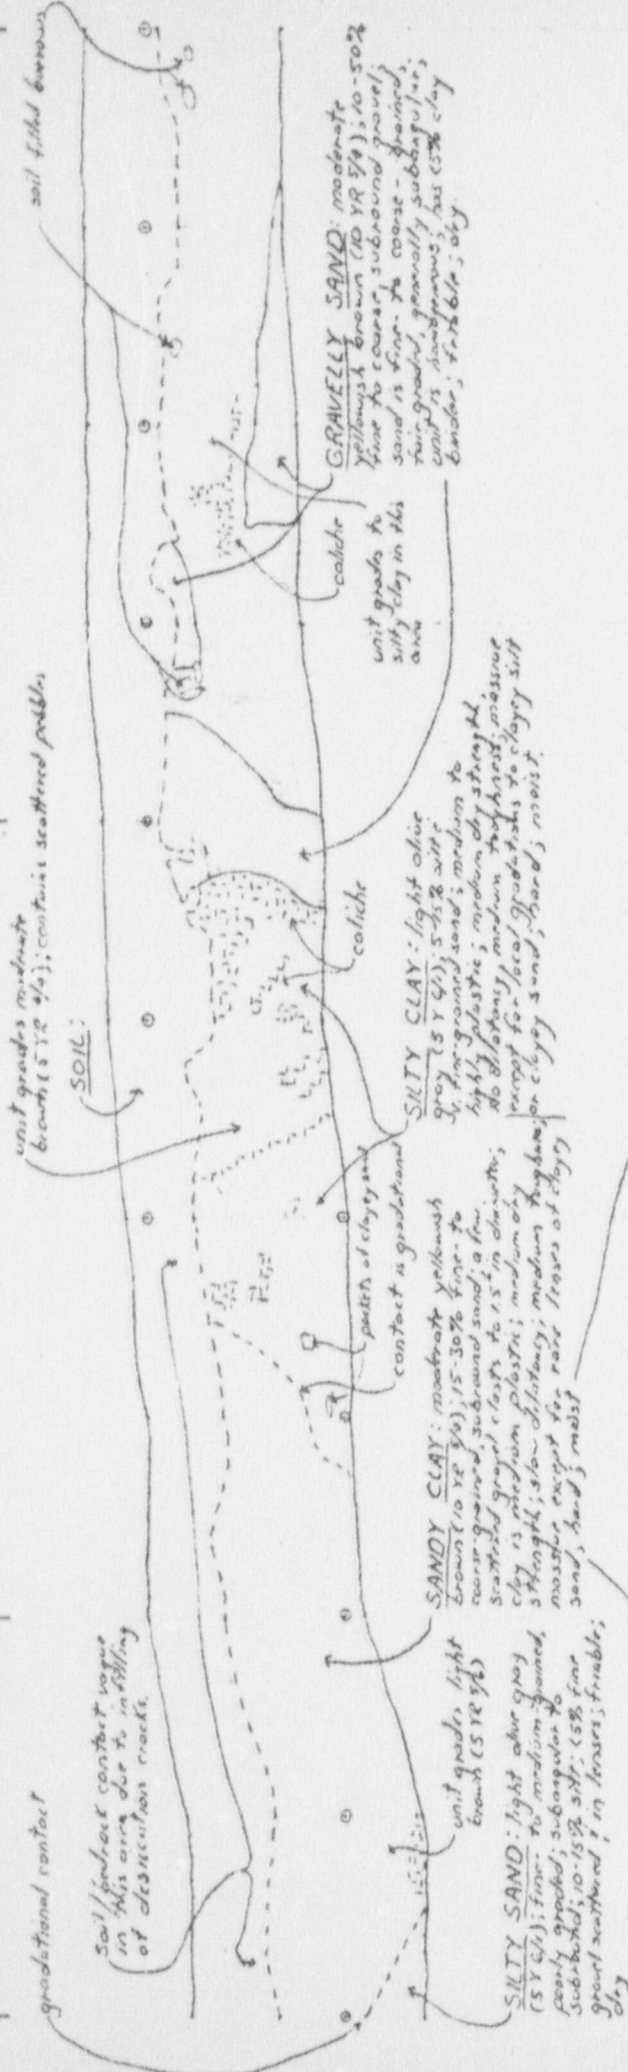 gradational contact
Soil/bedrock contact vague
in this area due to infilling
of desiccation cracks.
unit grades moderate
brown (5 YR 4/4); contains scattered pebbles
SOIL:
soil filled burrows
SILTY SAND: light olive gray
(5Y 6/1); fine- to medium-grained,
poorly graded; subangular to
subround; 10-15% silt; <5% fine
gravel scattered & in lenses; friable;
dry
unit grades light
brown (5 YR 5/6)
SANDY CLAY: moderate yellowish
brown (10 YR 5/4); 15-30% fine- to
coarse-grained, subround sand; a few
scattered gravel clasts to 1.5" in diameter;
clay is medium plastic; medium dry
strength; slow dilatancy; medium toughness;
massive except for rare lenses of clayey
sand; hard; moist
pockets of clayey sand
contact is gradational
SILTY CLAY: light olive
gray (5 Y 6/1); 5-15% silt &
v. fine-grained sand; medium to
highly plastic; medium dry strength,
no dilatancy, medium toughness; massive
except for local gradations to clayey silt
or clayey sand; hard; moist.
caliche
caliche
unit grades to
silty clay in this
area
GRAVELLY SAND: moderate
yellowish brown (10 YR 5/4); 10-50%
fine to coarse, subround gravel;
sand is fine- to coarse-grained,
fair graded, generally subangular;
unit is nongenous; has <5% clay
binder; friable; dry.